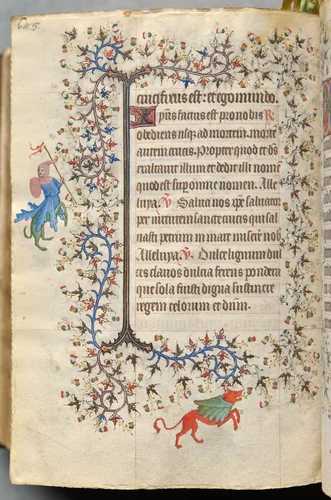 crucifixus est: et ego mundo.
Xp̄us factus est pro nobis R
obediens usq; ad mortem. morte
autem crucis. Propter quod et dc̄
exaltauit illum et dedit illi nomen
quod est sup omne nomen. Alle
luya. V Salua nos xp̄e saluator
per uirtutem sancte crucis qui sal
uasti petrum in mari miserē nob̄
Alleluya. V. Dulce lignum dul
ces clauos dulcia ferens pondera
que sola fuisti digna sustinere
regem celorum et dn̄m.